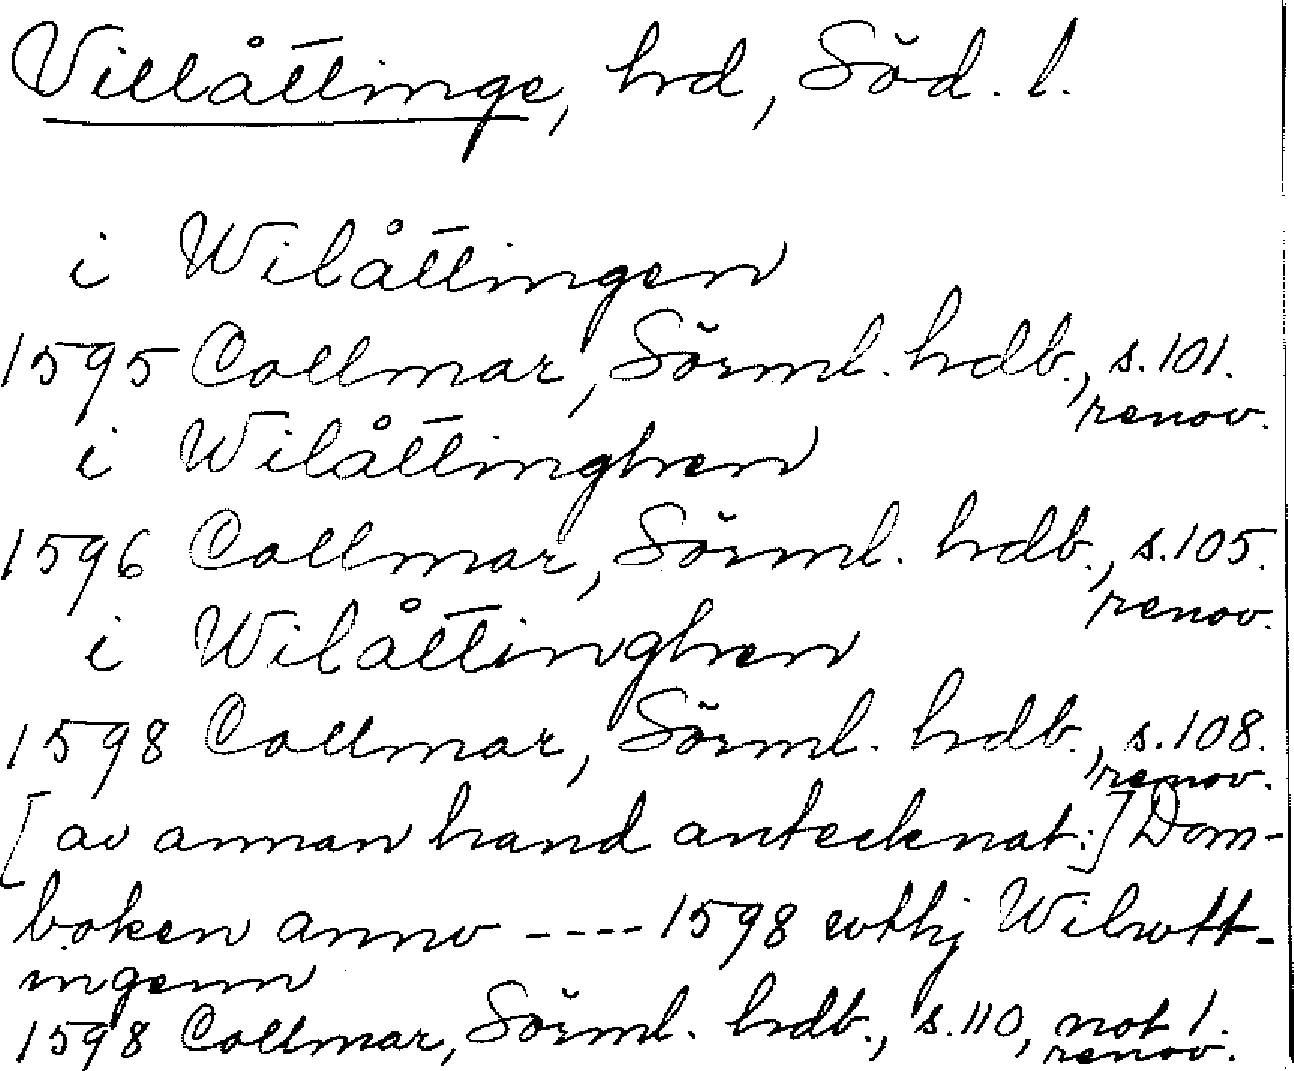 Villåttinge, hd, Söd. l.
i Wilåttingen
1595 Collmar, Sörml. hdb., s. 101.
renov.
i Wilåttinghen
1596 Collmar, Sörml. hdb., s. 105.
renov.
i Wilåttinghen
1598 Collmar, Sörml. hdb., s. 108.
renov.
[av annan hand antecknat:] Dom-
boken anno ---- 1598 wthj Wilwtt-
ingenn
1598 Collmar, Sörml. hdb., s. 110, not 1.
renov.